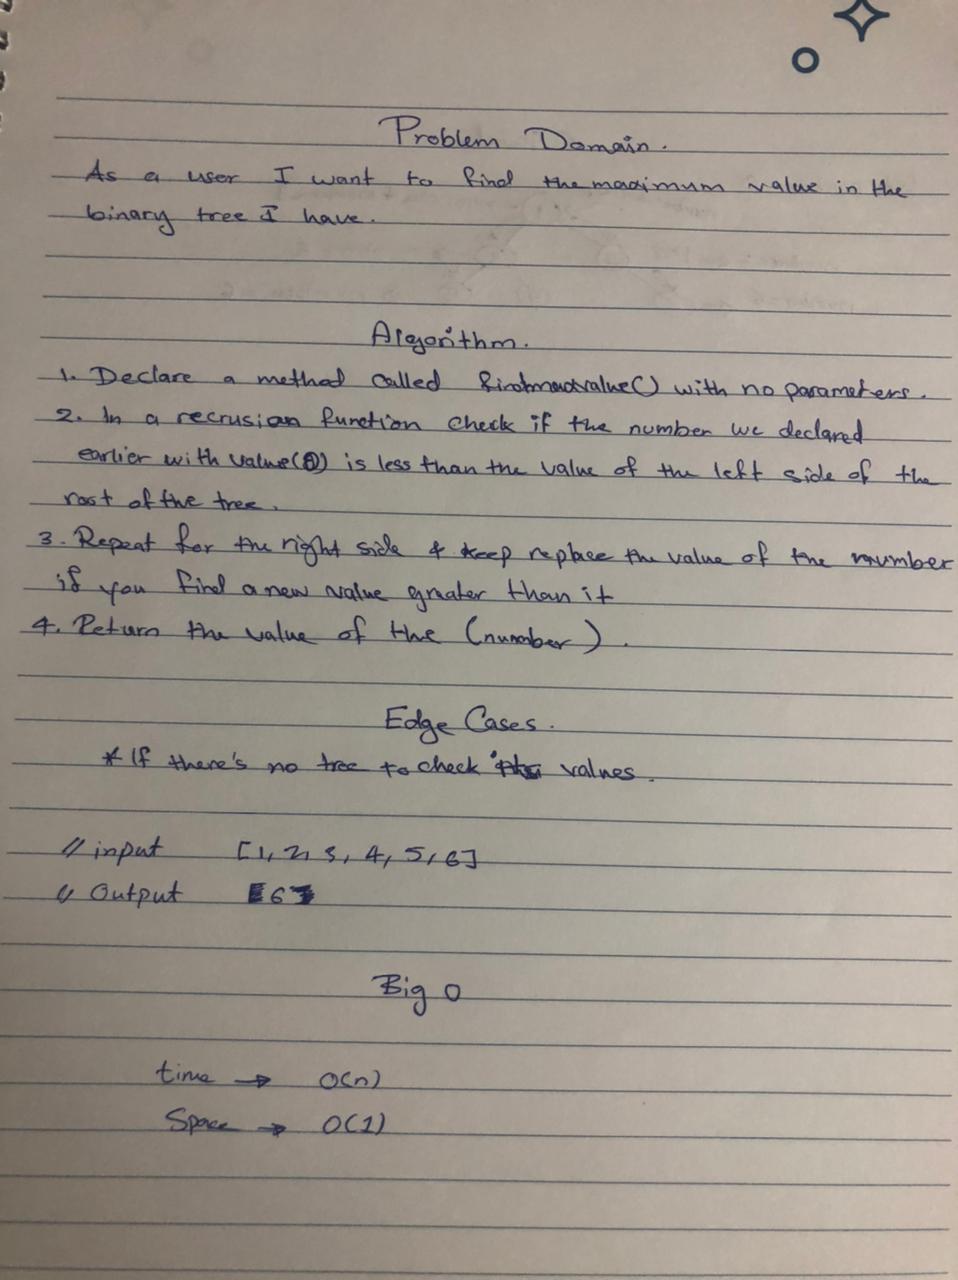 Problem Domain.
As a user I want to find the maximum value in the
binary tree I have.
Algorithm.
1. Declare a method called findmaxvalue() with no parameters.
2. In a recrusion function check if the number we declared
earlier with value(0) is less than the value of the left side of the
root of the tree.
3. Repeat for the right side & keep replace the value of the number
if you find a new value greater than it
4. Return the value of the (number).
Edge Cases.
* If there's no tree to check values.
// input [1, 2, 3, 4, 5, 6]
// Output 6
Big O
time → O(n)
Space → O(1)